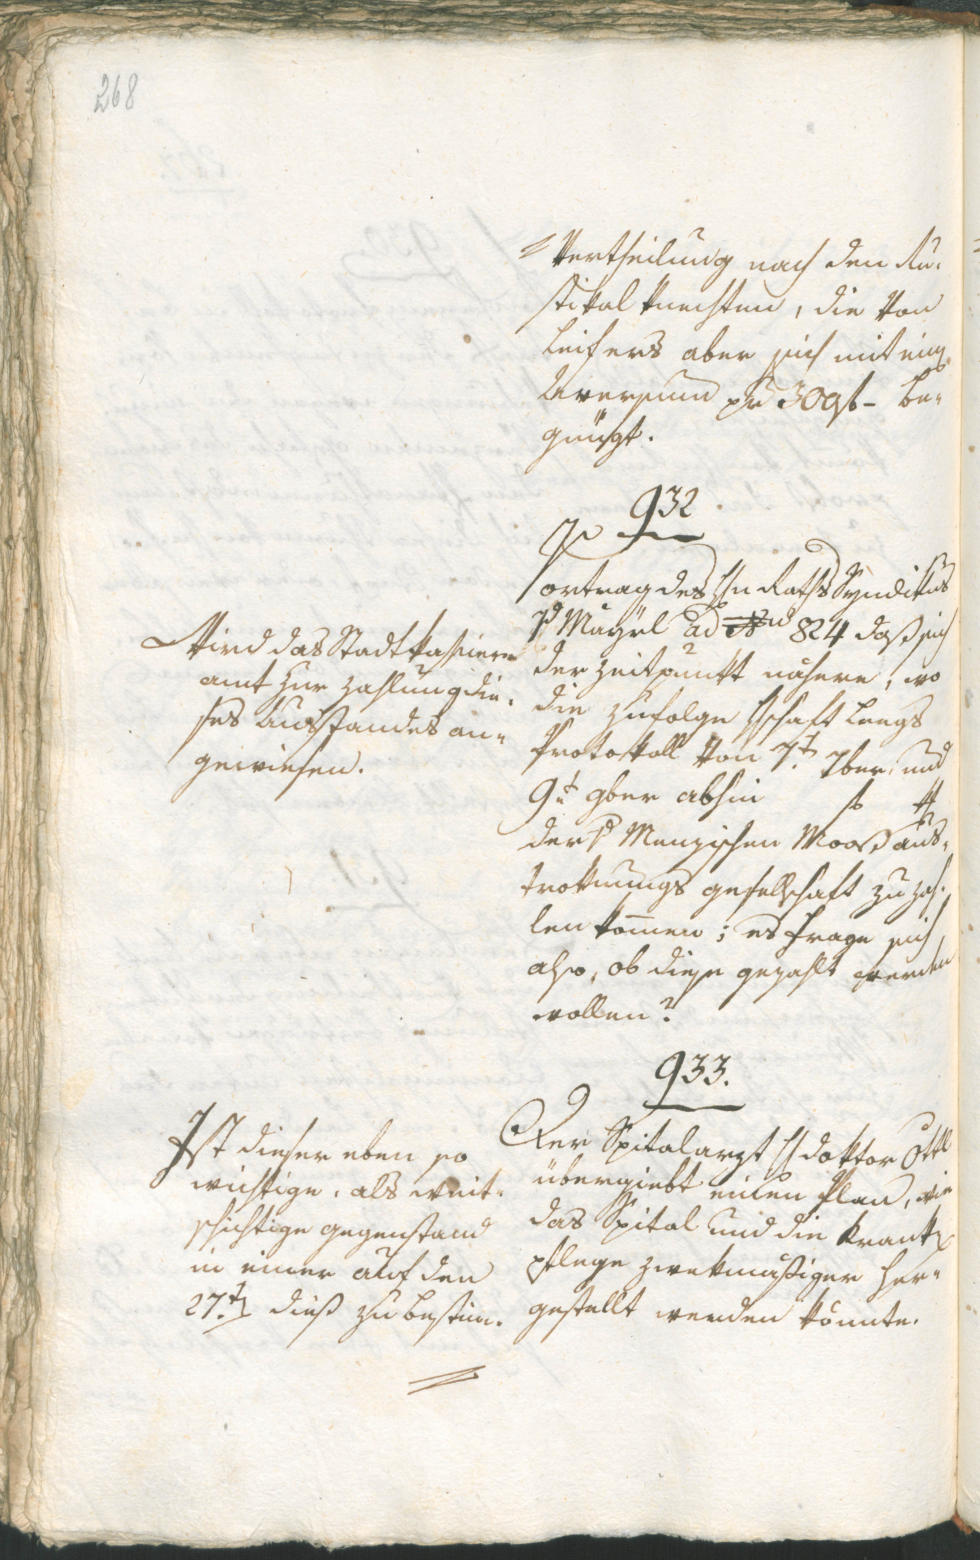 268
Vertheilung nach den Ru-
stikal Knechten, die Von
Leifers aber sich mit einem
Aversum pr 30 f - be-
gnügt.
932
Vortrag des Hn Raths Syndikus
Mayrl ad 824 daß sich
der Zeitpunkt nähere, wo
die zufolge Hschaft Leegs
Protokoll Von 7t 7ber, und
9t 9ber abhin
der Menzischen Moosaus-
troknungs gesellschaft zu zah-
len kommen; es frage sich
also, ob diese gezahlt werden
wollen?
Wird das Stadtkassier
amt zur Zahlung die-
ses Ausstandes an-
gewiesen.
933.
Der Spitalarzt H doktor Ottl
übergiebt einen Plan, wie
das Spital und die Kranken
pflege zwekmäßiger her-
gestellt werden könnte.
Ist dieser eben so
wichtige, als weit-
schichtige gegenstand
in einer auf den
27t dieß zu bestim-